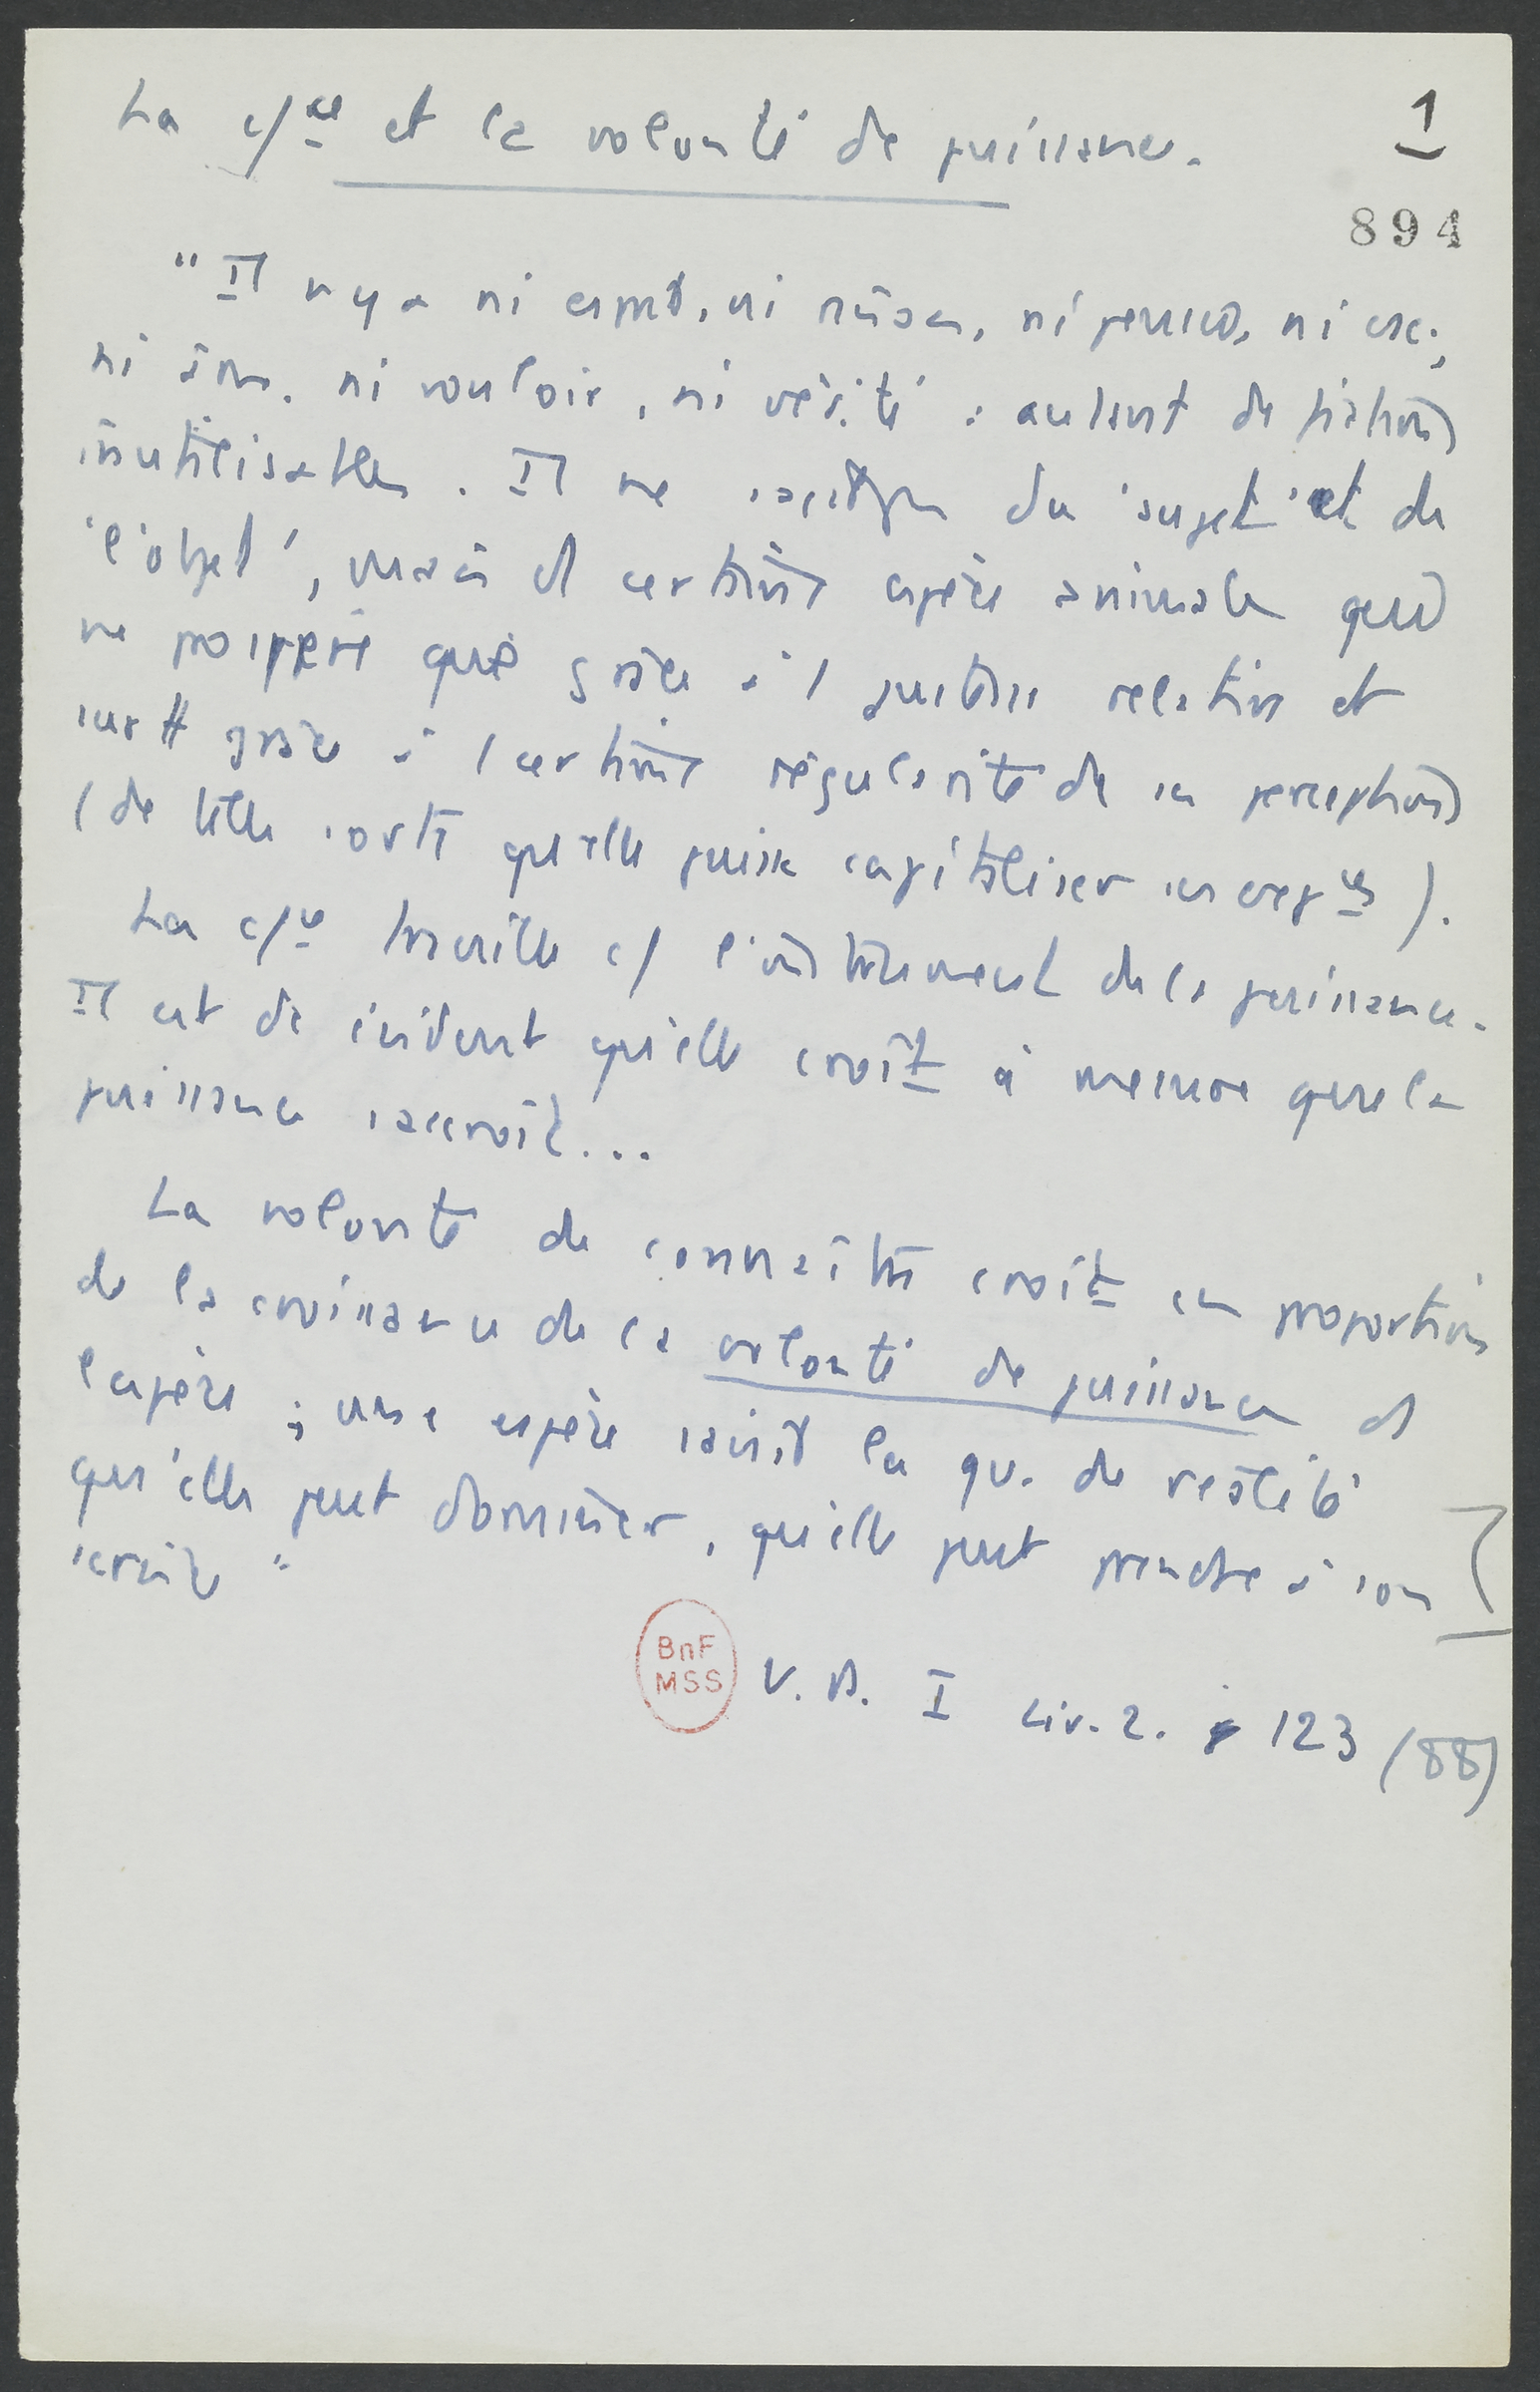 La c/ce et la volonté de puissance.
1
894
"Il n'y a ni esprit, ni raison, ni pensée, ni csc;
ni âme, ni vouloir, ni vérité : autant de fictions
inutilisables. Il ne s'agit pas du 'sujet' et de
'l'objet', mais d certaine espèce animale qui
ne prospère que grâce à 1 justesse relative et
surtt grâce à 1 certaine régularité de ses perceptions
(de telle sorte qu'elle puisse capitaliser ses expces).
La c/ce travaille c/ l'instrument de la puissance.
Il est dc évident qu'elle croît à mesure que la
puissance s'accroît...
La volonté de connaître croît en proportion
de la croissance de la volonté de puissance d
l'espèce ; une espèce saisit la qu. de réalité
qu'elle peut dominer, qu'elle peut prendre à son
service"
BnF
MSS
V.P. I Liv. 2. § 123 (88)